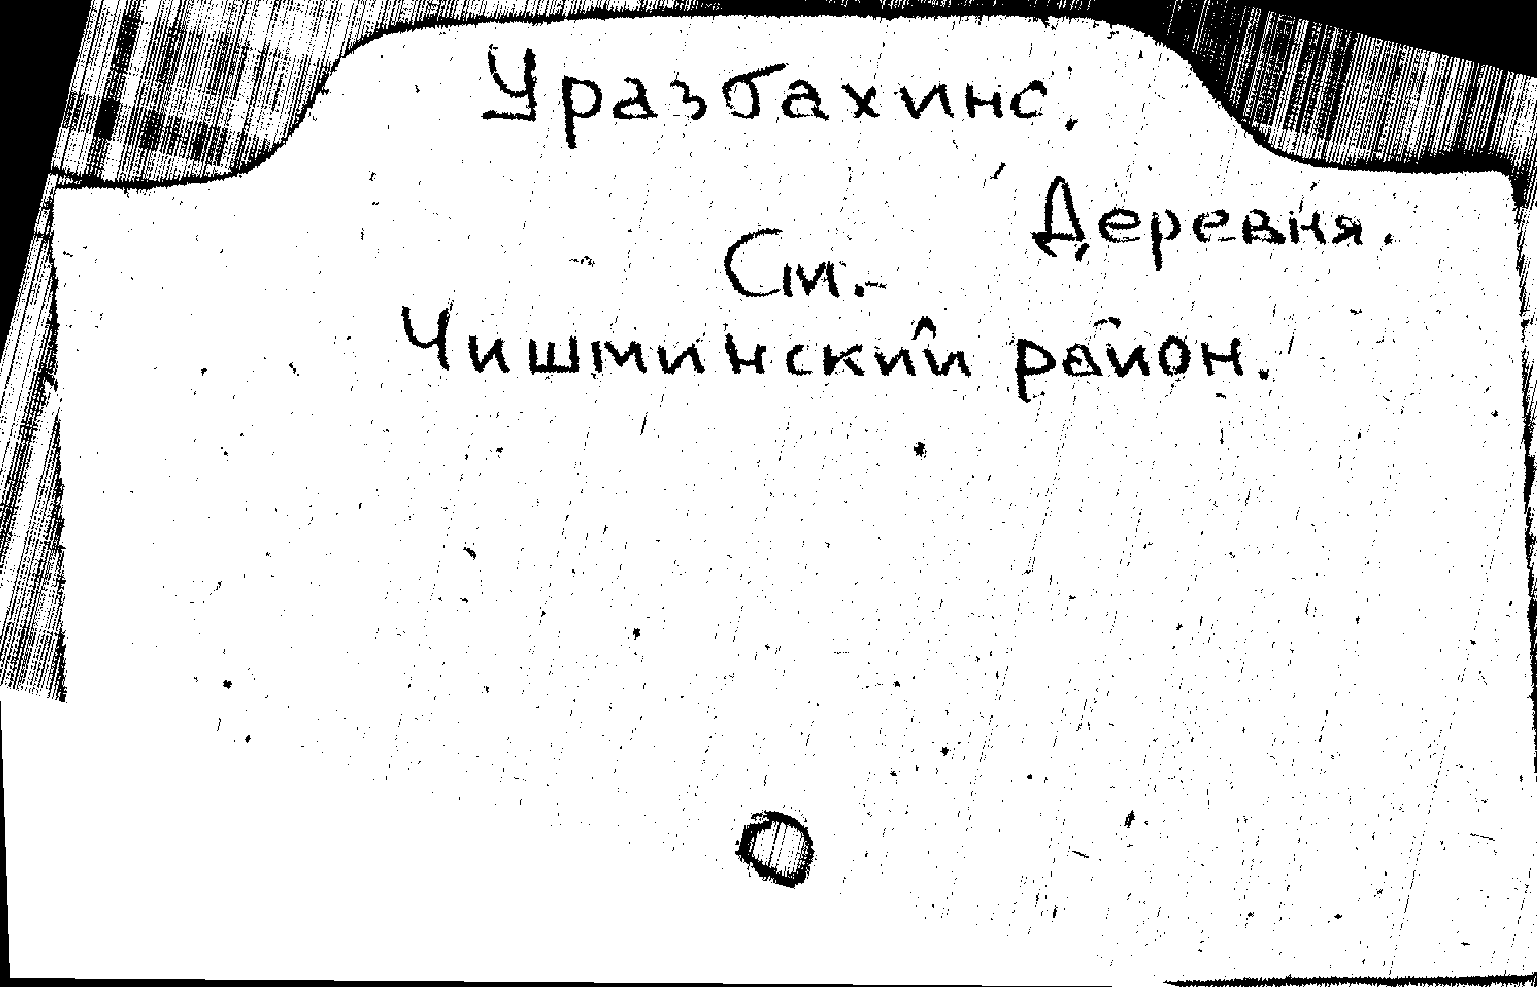 Уразбахинс.
Деревня.
См.
Чишминский район.